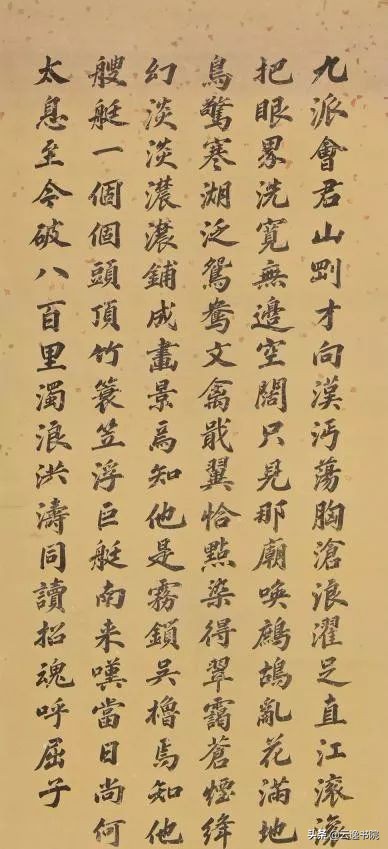 九派會君山剛才向漢沔蕩胸滄浪濯足直江滾滾
把眼界洗寬無邊空闊只見那廟喚鷓鴣亂花滿地
鳥驚寒湖泛鴛鴦文禽戢翼恰點染得翠靄蒼煙絳
幻淡淡濃濃鋪成畫景焉知他是霧鎖吳檣焉知他
艘艇一個個頭頂竹簑笠浮巨艇南来嘆當日尚何
太息至今破八百里濁浪洪濤同讀招魂呼屈子
头条 @云逸书院